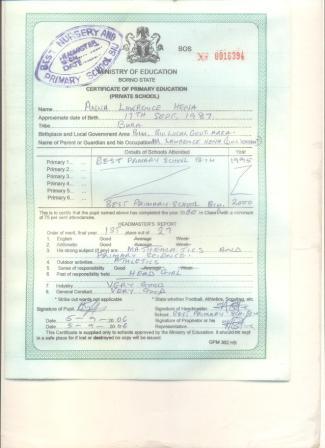 BEST NURSERY AND
PRIMARY SCHOOL BIU
DATE
BOS
No 0016394
MINISTRY OF EDUCATION
BORNO STATE
CERTIFICATE OF PRIMARY EDUCATION
(PRIVATE SCHOOL)
Name ANNA LAWRENCE HENA
Approximate date of Birth. 17TH SEPT. 1987.
Tribe BURA
Birthplace and Local Government Area BIU LOCAL GOVT. AREA.
Name of Parent or Guardian and his Occupation M. LAWRENCE HENA
Details of Schools Attended Year
Primary 1 ... BEST PRIMARY SCHOOL BIU 1995
Primary 2 ...
Primary 3 ...
Primary 4 ...
Primary 5 ...
Primary 6 ... BEST PRIMARY SCHOOL BIU. 2000
This is to certify that the pupil named above has completed the year 2000 in Class with a minimum
of 75 per cent attendances.
HEADMASTER'S REPORT
Order of merit, final year 1ST place out of 27
1. English Good Average Weak
2. Arithmetic Good Average Weak
3. His strong subject (if any) are MATHEMATICS AND
PRIMARY SCIENCE.
4. Outdoor activities ATHLETICS
5. Sense of responsibility Good Average Weak
6. Post of responsibility held HEAD GIRL
7. Industry VERY GOOD
8. General Conduct VERY GOOD
* Strike out words not applicable. * State whether Football, Athletics, Scouting, etc.
Signature of Pupil Signature of Headmaster
School BEST PRIMARY SCH. BIU
Date 5-9-2000 Signature of Proprietor or his
Date 5-9-2000 Representative.
This Certificate is supplied only to schools approved by the Ministry of Education. It should be kept
in a safe place for if lost or destroyed no copy will be issued